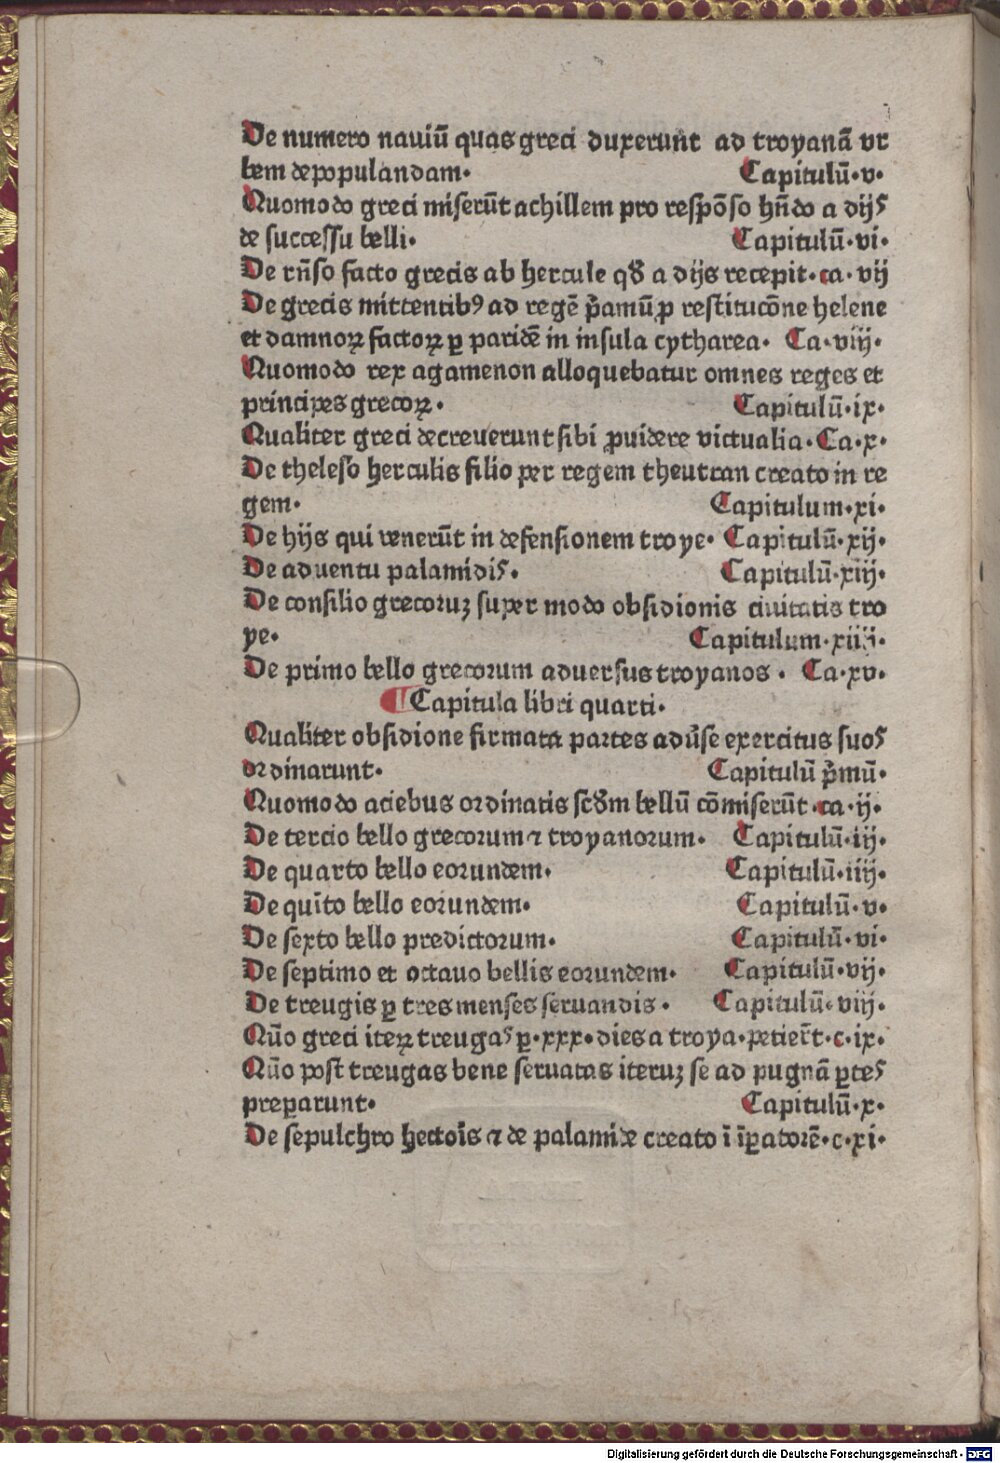 De numero nauiū quas greci duxerunt ad troyanā vr
bem depopulandam. Capitulū.v.
Quomodo greci miserūt achillem pro respōso hn̄do a dijs
de successu belli. Capitulū.vi.
De rn̄so facto grecis ab hercule qð a dijs recepit.ca.vij
De grecis mittentibꝰ ad regē p̄amū ꝓ restitucōne helene
et damnoꝝ factoꝝ ꝑ paridē in insula cytharea. Ca.viij.
Quomodo rex agamenon alloquebatur omnes reges et
principes grecoꝝ. Capitulū.ix.
Qualiter greci decreuerunt sibi ꝓuidere victualia.Ca.x.
De theleso herculis filio per regem theutran creato in re
gem. Capitulum.xi.
De hijs qui venerūt in defensionem troye. Capitulū.xij.
De aduentu palamidis. Capitulū.xiij.
De consilio grecoruꝫ super modo obsidionis ciuitatis tro
ye. Capitulum.xiiij.
De primo bello grecorum aduersus troyanos. Ca.xv.
¶Capitula libri quarti.
Qualiter obsidione firmata partes adūse exercitus suos
ordinarunt. Capitulū p̄mū.
Quomodo aciebus ordinatis scðm bellū cōmiserūt.ca.ij.
De tercio bello grecorum ⁊ troyanorum. Capitulū.iij.
De quarto bello eorundem. Capitulū.iiij.
De quīto bello eorundem. Capitulū.v.
De sexto bello predictorum. Capitulū.vi.
De septimo et octauo bellis eorundem. Capitulū.vij.
De treugis ꝑ tres menses seruandis. Capitulū.viij.
Qūo greci iteꝝ treugas ꝑ.xxx.dies a troya.petier̄t.c.ix.
Qūo post treugas bene seruatas iteruꝫ se ad pugnā ꝑtes
preꝑarunt. Capitulū.x.
De sepulchro hectoīs ⁊ de palamide creato ī īꝑatorē.c.xi.
Digitalisierung gefördert durch die Deutsche Forschungsgemeinschaft - DFG